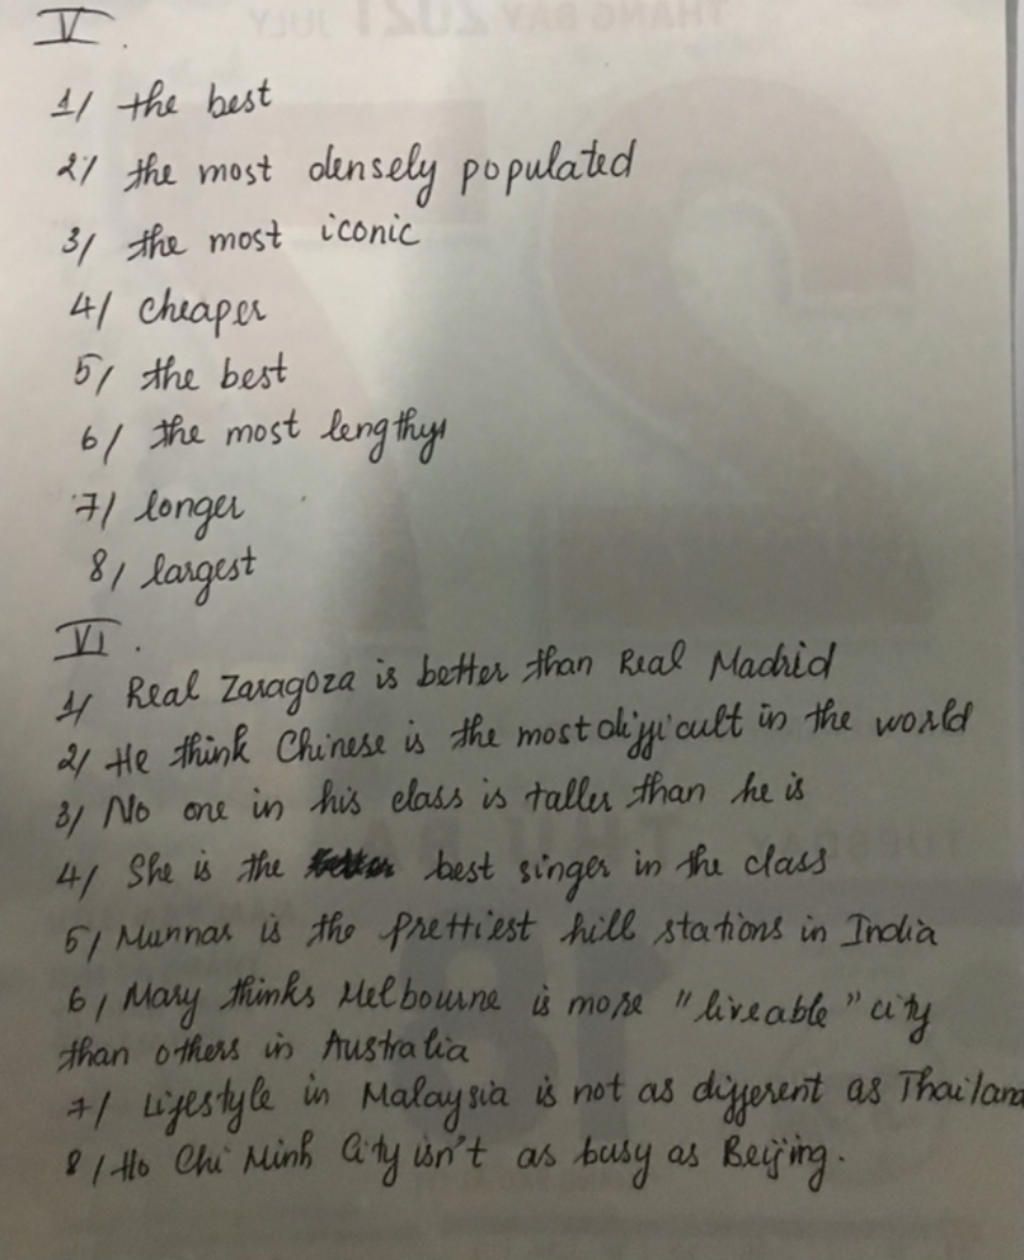 V.
1/ the best
2/ the most densely populated
3/ the most iconic
4/ cheaper
5/ the best
6/ the most lengthy
7/ longer
8/ largest
VI.
1/ Real Zaragoza is better than Real Madrid
2/ He think Chinese is the most difficult in the world
3/ No one in his class is taller than he is
4/ She is the best singer in the class
5/ Munnar is the prettiest hill stations in India
6/ Mary thinks Melbourne is more "liveable" city
than others in Australia
7/ Lifestyle in Malaysia is not as different as Thailand
8/ Ho Chi Minh City isn't as busy as Beijing.